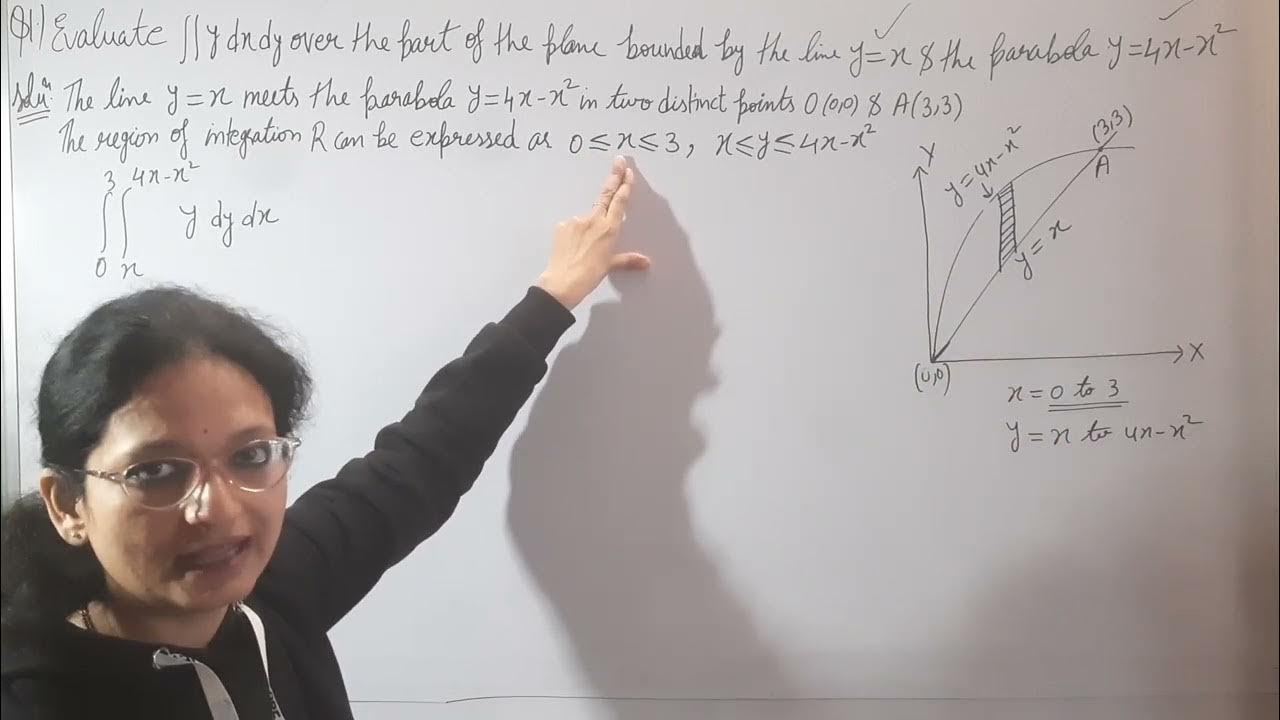 Q1) Evaluate ∬ y dx dy over the part of the plane bounded by the line y = x & the parabola y = 4x-x²
Soluⁿ: The line y = x meets the parabola y = 4x-x² in two distinct points O(0,0) & A(3,3)
The region of integration R can be expressed as 0 ≤ x ≤ 3, x ≤ y ≤ 4x-x²
3 4x-x²
∫∫ y dy dx
0 x
Y
y = 4x-x²
(3,3)
A
y = x
(0,0)
X
x = 0 to 3
y = x to 4x-x²